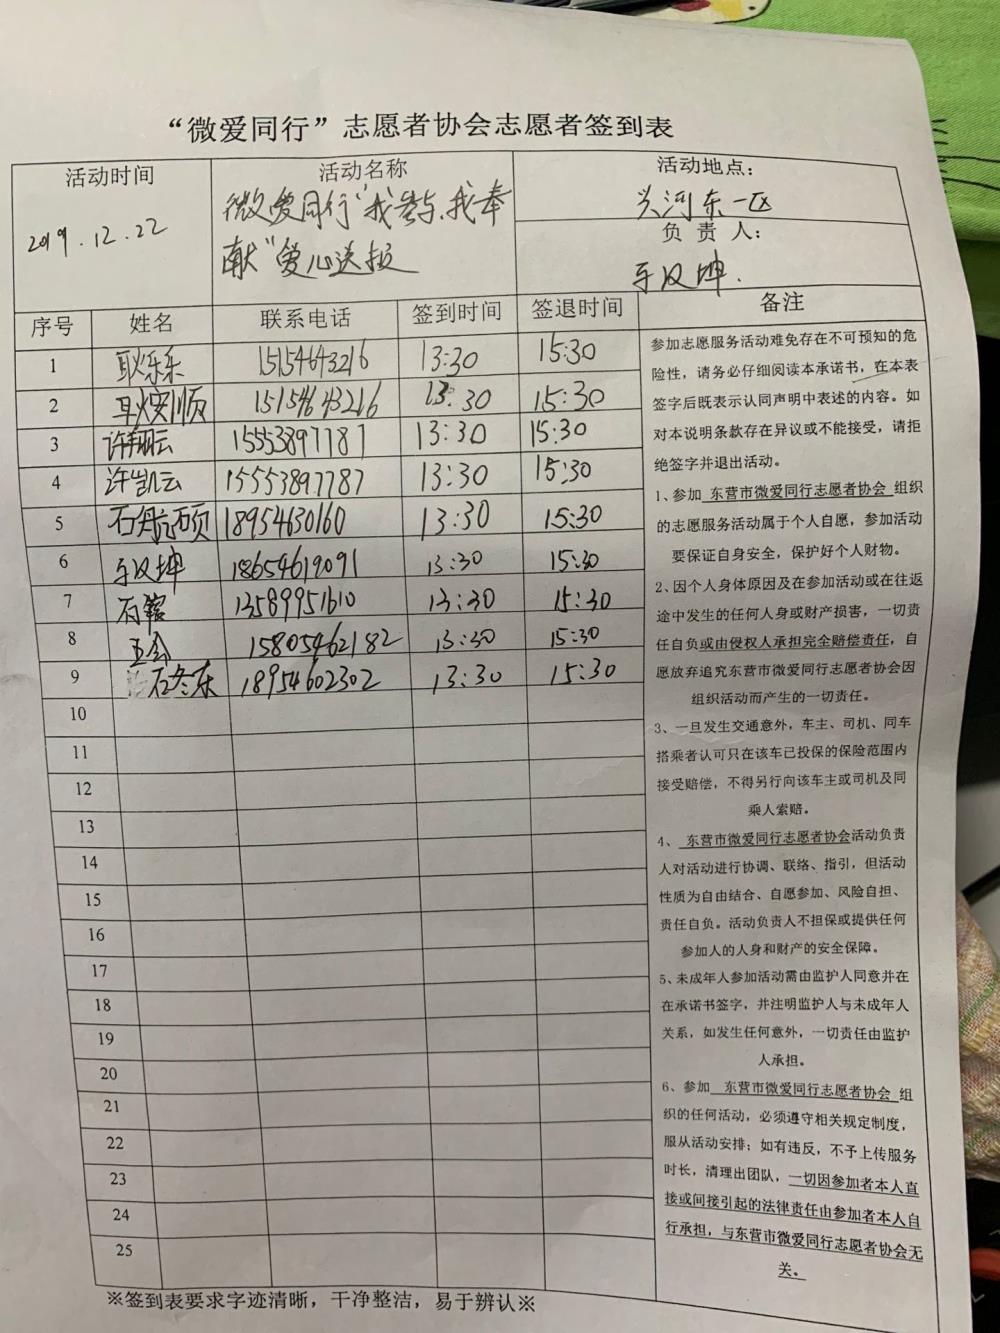 “微爱同行”志愿者协会志愿者签到表
活动时间
2019.12.22
活动名称
微爱同行“我参与、我奉
献”爱心送报
活动地点：
兴河东一区
负责人：
坤.
序号 姓名 联系电话 签到时间 签退时间 备注
1 耿乐乐 15154643216 13:30 15:30
2 耿安顺 15154643216 13:30 15:30
3 许翔云 15553897787 13:30 15:30
4 许凯云 15553897787 13:30 15:30
5 石航硕 18954630160 13:30 15:30
6 坤 18654619091 13:30 15:30
7 石 13589951610 13:30 15:30
8 15805462182 13:30 15:30
9 石冬东 18954602302 13:30 15:30
10
11
12
13
14
15
16
17
18
19
20
21
22
23
24
25
参加志愿服务活动难免存在不可预知的危
险性，请务必仔细阅读本承诺书，在本表
签字后既表示认同声明中表述的内容。如
对本说明条款存在异议或不能接受，请拒
绝签字并退出活动。
1、参加 东营市微爱同行志愿者协会 组织
的志愿服务活动属于个人自愿，参加活动
要保证自身安全，保护好个人财物。
2、因个人身体原因及在参加活动或在往返
途中发生的任何人身或财产损害，一切责
任自负或由侵权人承担完全赔偿责任，自
愿放弃追究东营市微爱同行志愿者协会因
组织活动而产生的一切责任。
3、一旦发生交通意外，车主、司机、同车
搭乘者认可只在该车已投保的保险范围内
接受赔偿，不得另行向该车主或司机及同
乘人索赔。
4、 东营市微爱同行志愿者协会活动负责
人对活动进行协调、联络、指引，但活动
性质为自由结合、自愿参加、风险自担、
责任自负。活动负责人不担保或提供任何
参加人的人身和财产的安全保障。
5、未成年人参加活动需由监护人同意并在
在承诺书签字，并注明监护人与未成年人
关系，如发生任何意外，一切责任由监护
人承担。
6、参加 东营市微爱同行志愿者协会 组
织的任何活动，必须遵守相关规定制度，
服从活动安排；如有违反，不予上传服务
时长，清理出团队，一切因参加者本人直
接或间接引起的法律责任由参加者本人自
行承担，与东营市微爱同行志愿者协会无
关。
※签到表要求字迹清晰，干净整洁，易于辨认※